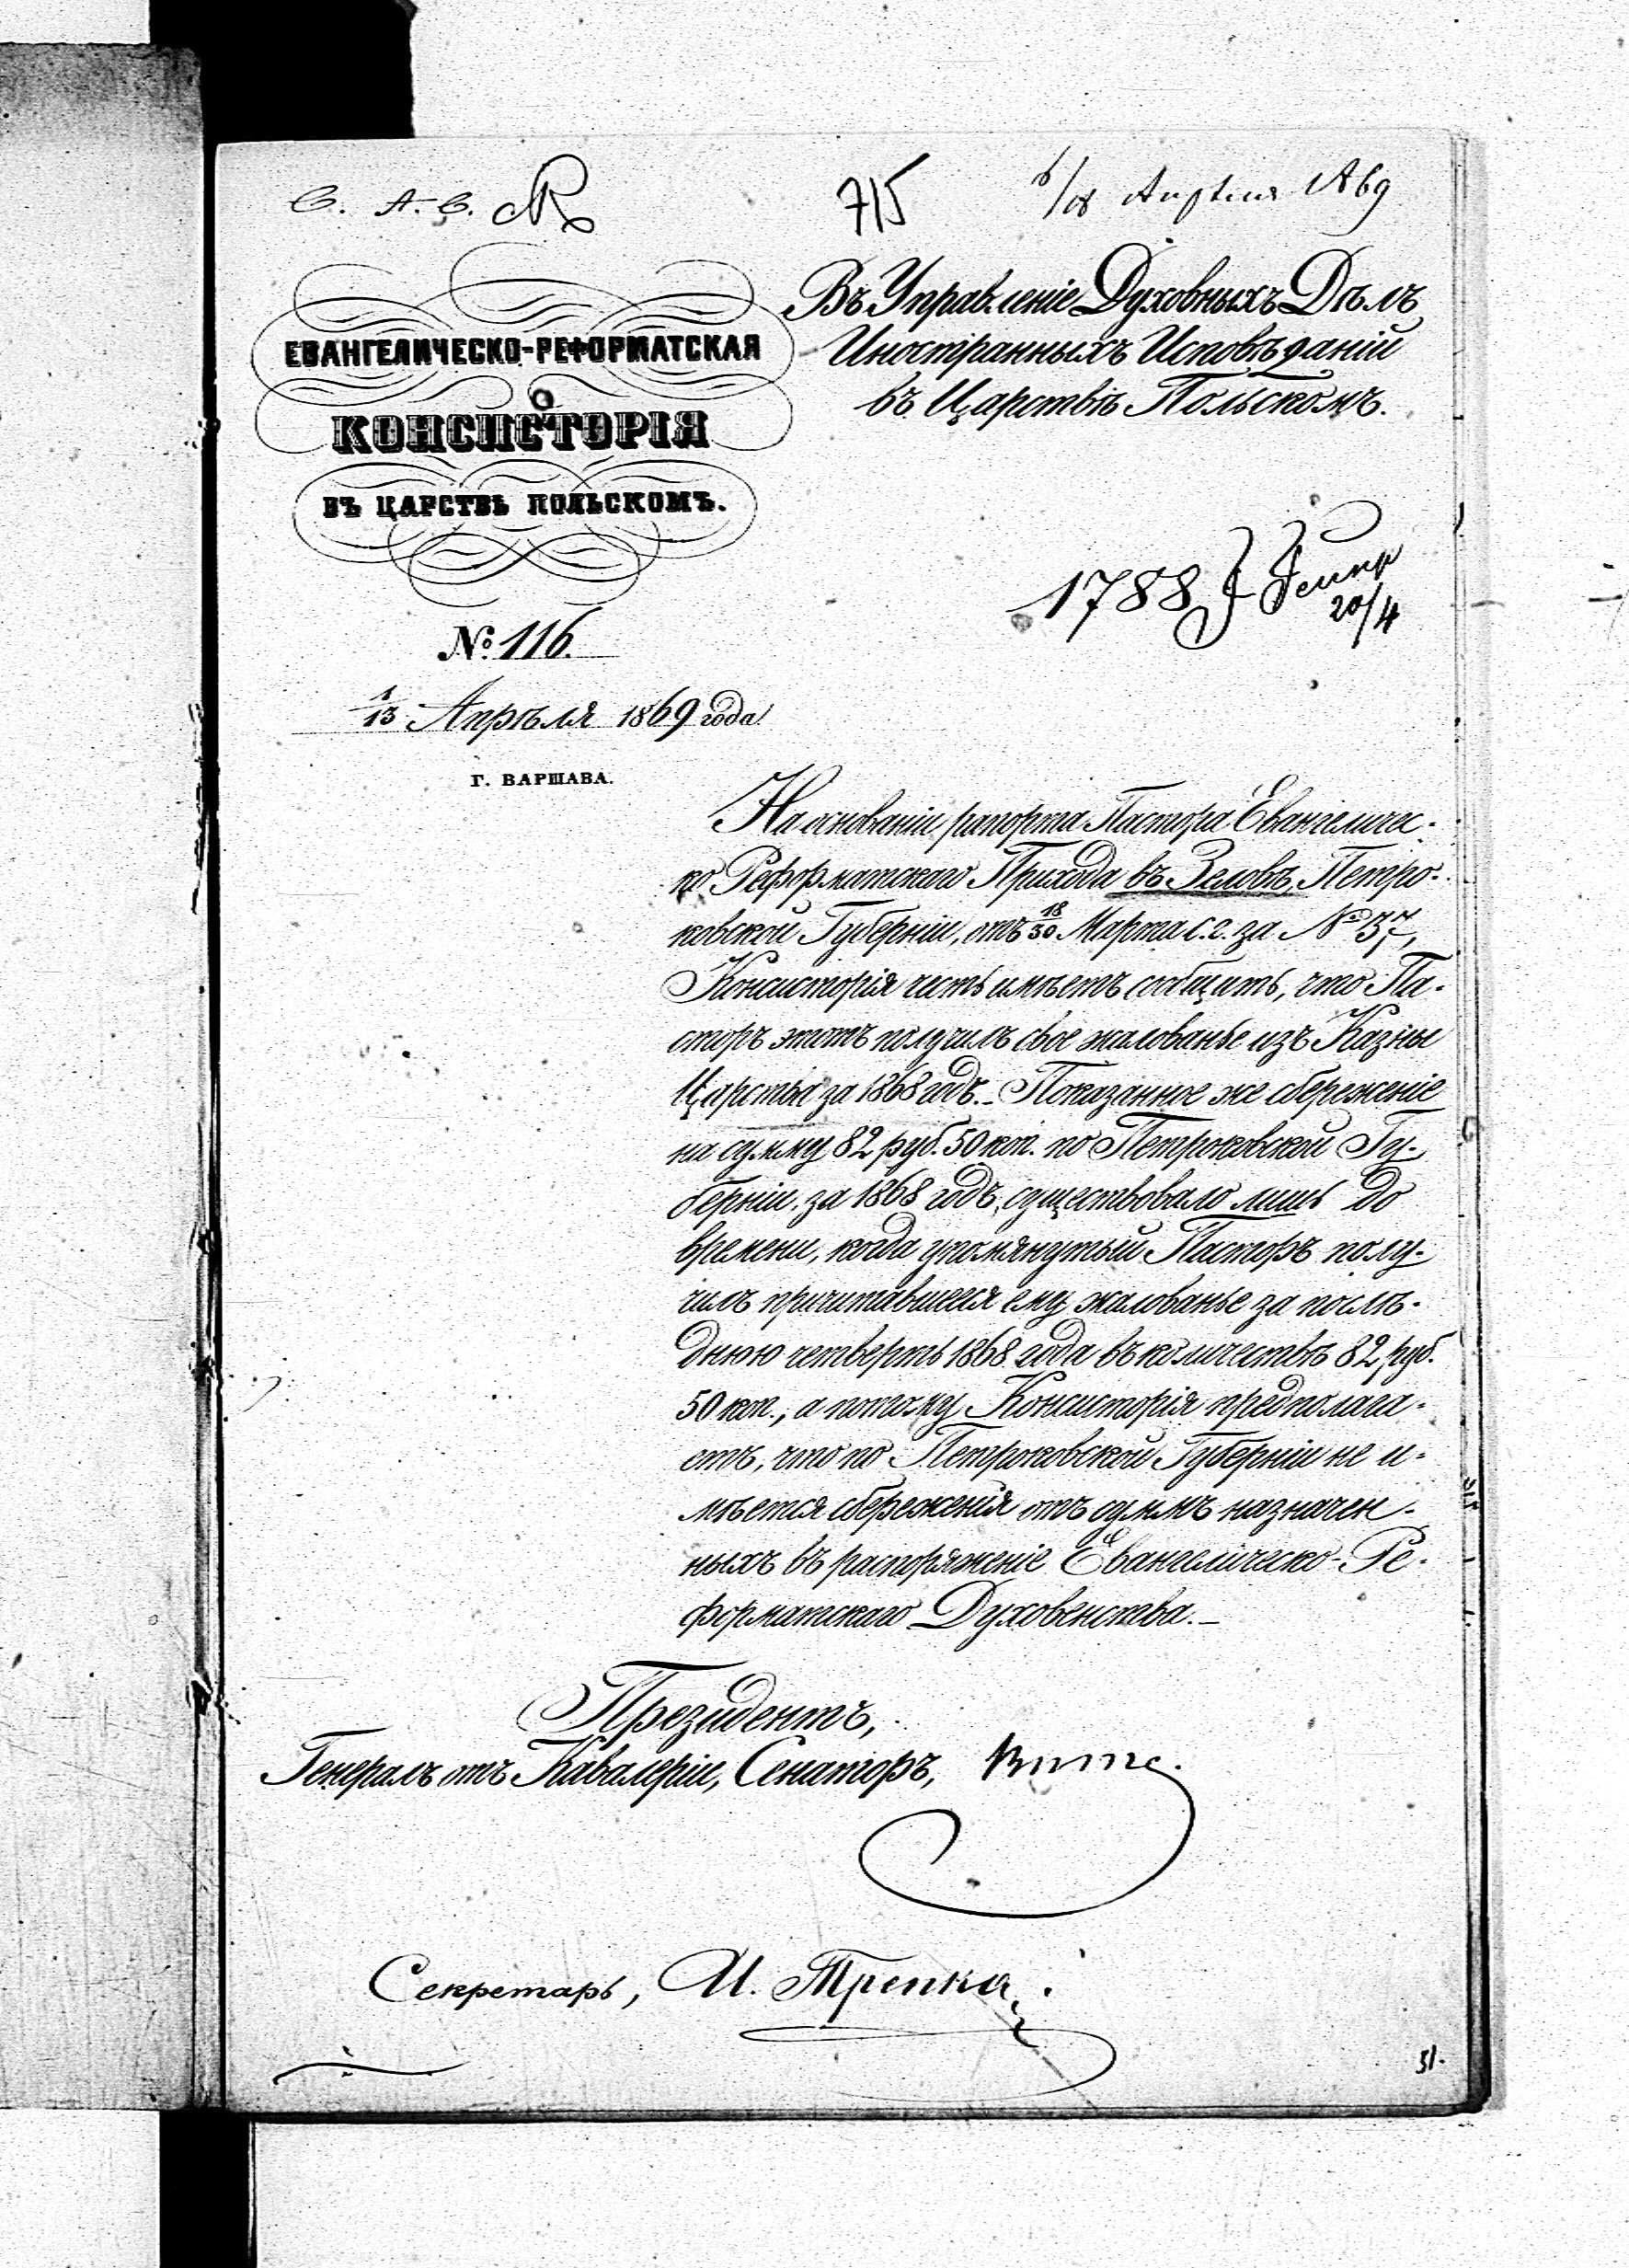 715
6/18 Апрѣля 1869
Въ Управленіе Духовныхъ Дѣлъ
Иностранныхъ Исповѣданій
въ Царствѣ Польскомъ.
ЕВАНГЕЛИЧЕСКО-РЕФОРМАТСКАЯ
КОНСИСТОРІЯ
ВЪ ЦАРСТВѢ ПОЛЬСКОМЪ.
1788
20/4
№ 116.
1/13 Апрѣля 1869 года
Г. ВАРШАВА.
На основаніи рапорта Пастора Евангеличес-
ко Реформатскаго Прихода въ Зеловѣ, Петро-
ковской Губерніи, отъ 18/30 Марта с.г. за № 37,
Консисторія честь имѣетъ сообщить, что Па-
сторъ этотъ получилъ свое жалованье изъ Казны
Царства за 1868 годъ. – Показанное же сбереженіе
на сумму 82 руб. 50 коп. по Петроковской Гу-
берніи за 1868 годъ, существовало лишь до
времени, когда упомянутый Пасторъ полу-
чилъ причитавшееся ему жалованье за послѣ-
днюю четверть 1868 года въ количествѣ 82 руб.
50 коп., а потому Консисторія предполага-
етъ, что по Петроковской Губерніи не и-
мѣется сбереженія отъ суммъ назначен-
ныхъ въ распоряженіе Евангелическо-Ре-
форматскаго Духовенства. –
Президентъ,
Генералъ отъ Кавалеріи, Сенаторъ, Витте.
Секретарь, И. Трепка.
51.